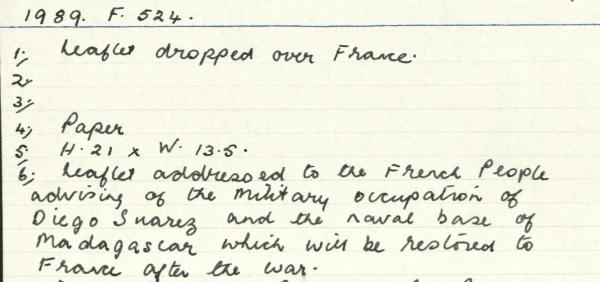 1989. F. 524.
1; Leaflet dropped over France.
2;
3;
4; Paper
5; H. 21 x W. 13.5.
6; Leaflet addressed to the French People
advising of the military occupation of
Diego Suarez and the naval base of
Madagascar which will be restored to
France after the war.